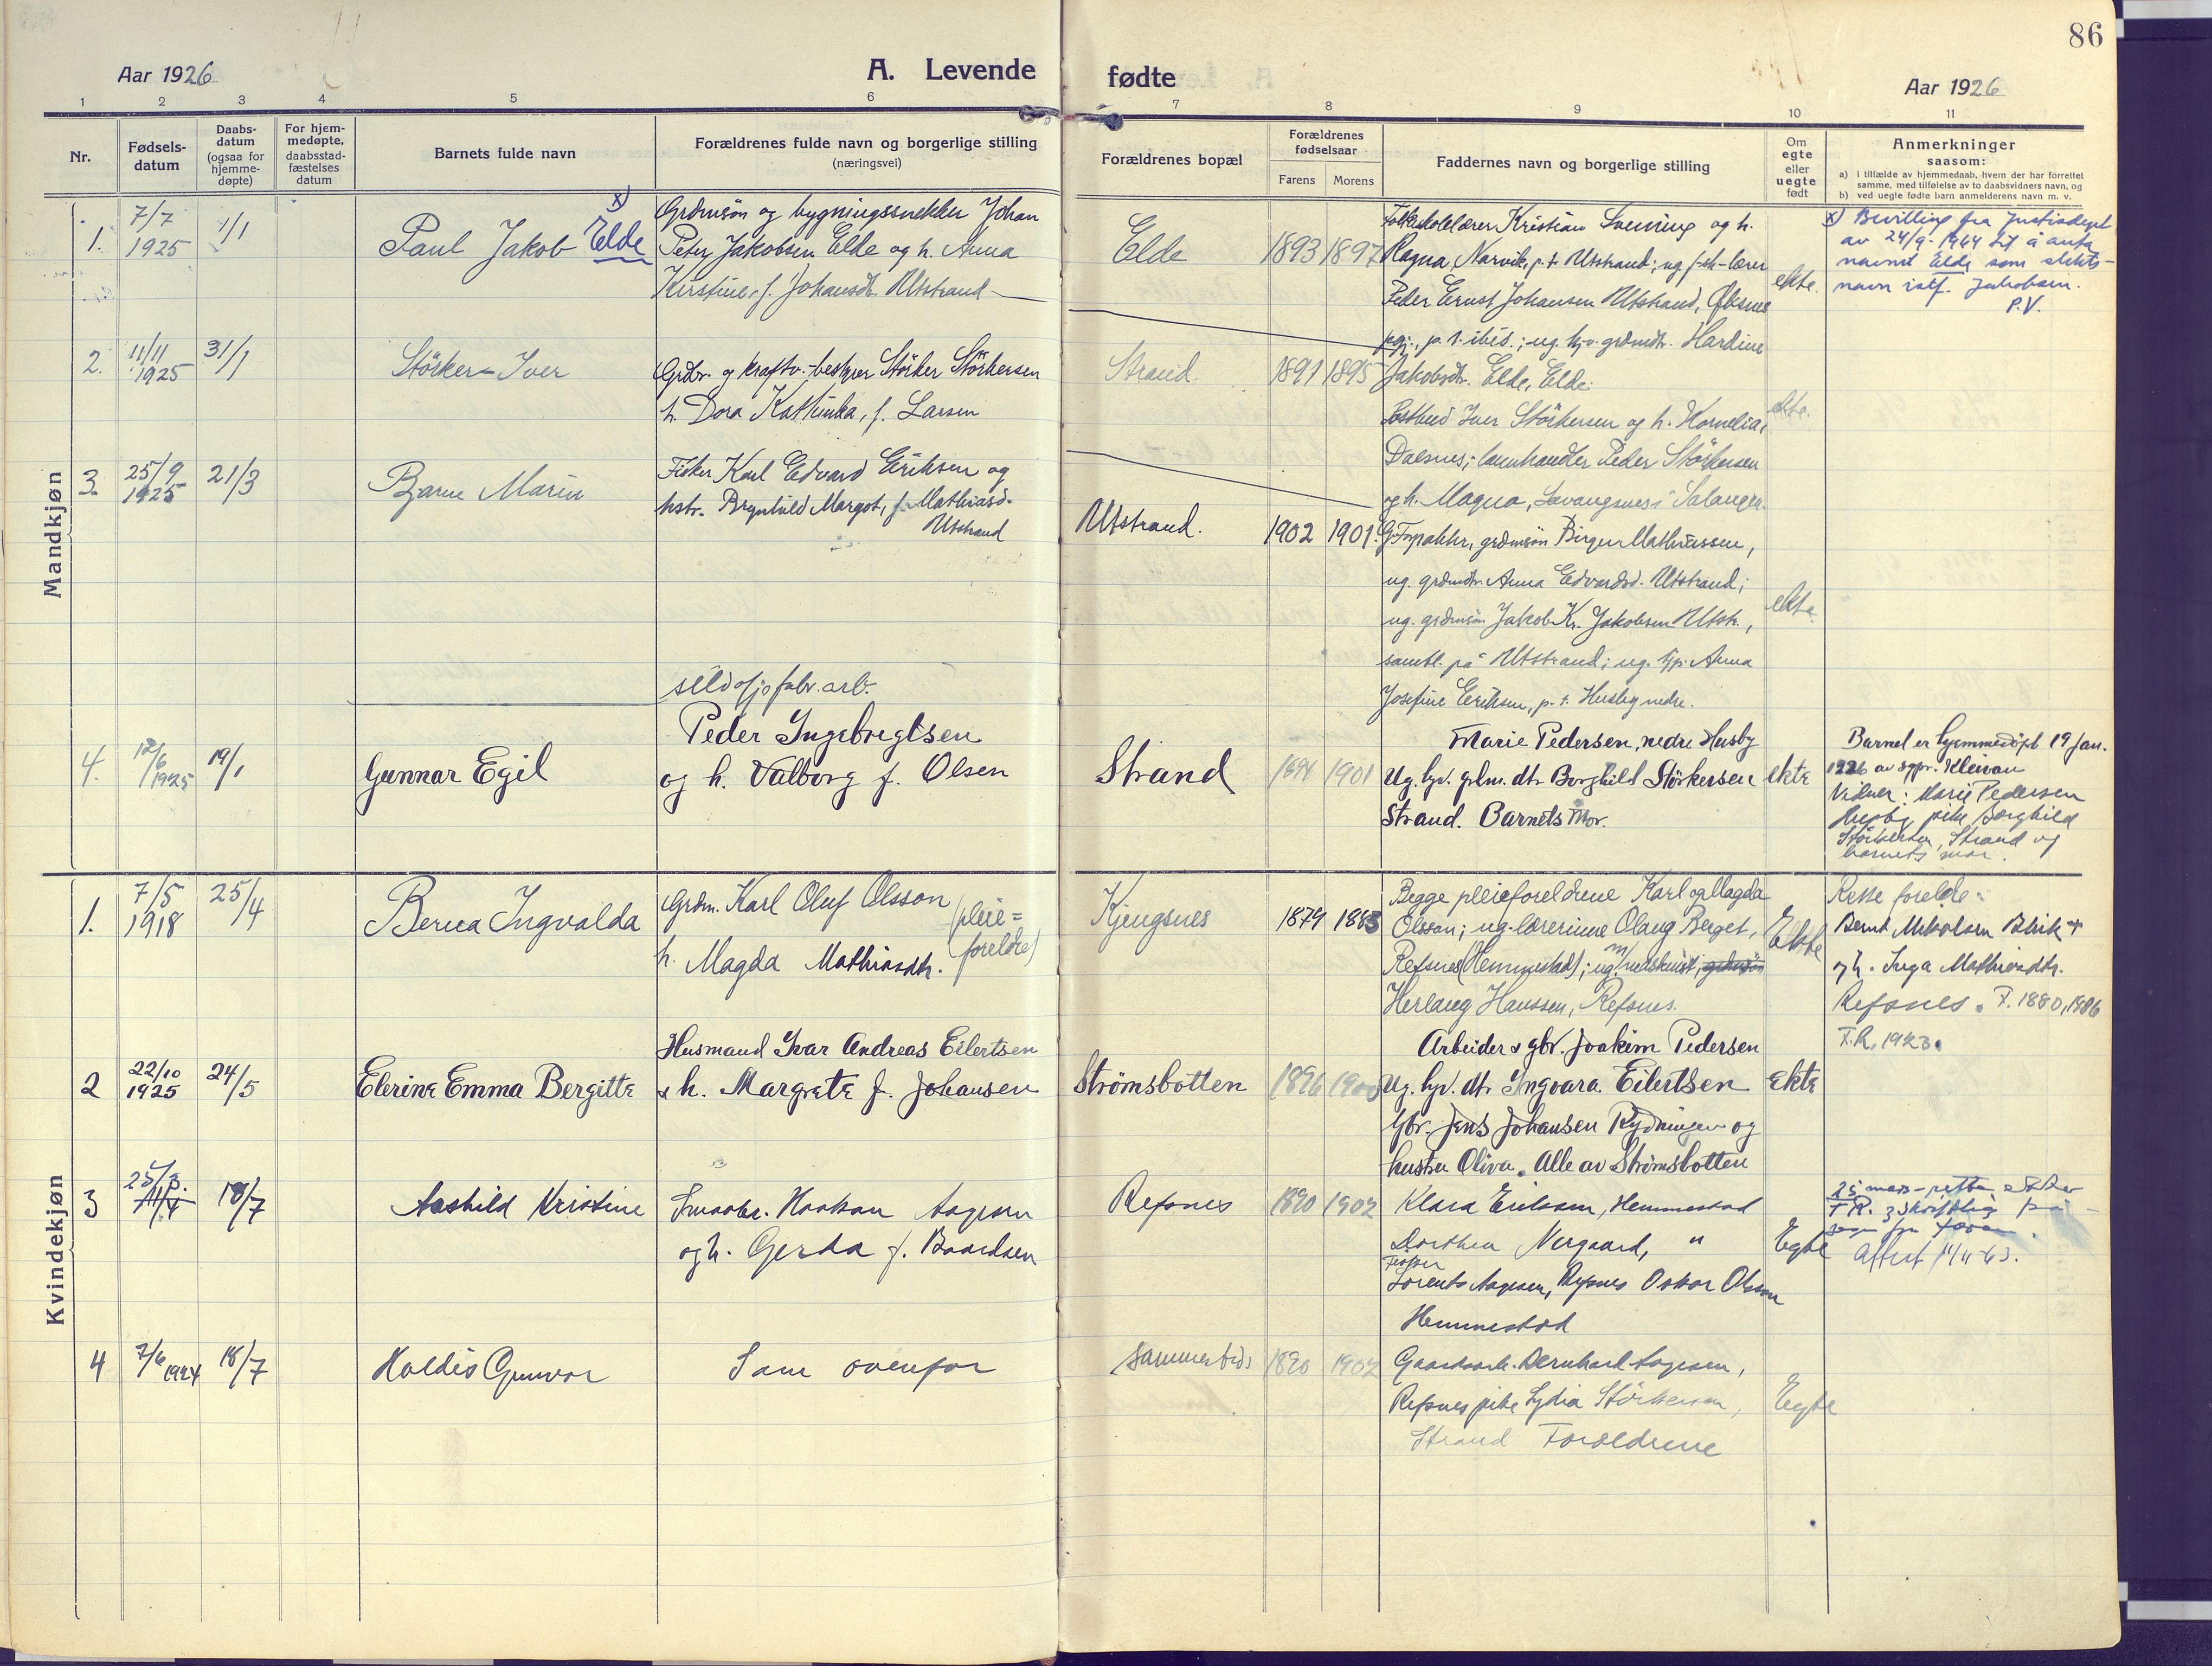 86
Aar 1926
A. Levende
fødte
Aar 1926
1 2 3 4 5 6 7 8 9 10 11
Nr.
Fødsels-
datum
Daabs-
datum
(ogsaa for
hjemme-
døpte)
For hjem-
medøpte,
daabsstad-
fæstelses
datum
Barnets fulde navn
Forældrenes fulde navn og borgerlige stilling
(næringsvei)
Forældrenes bopæl
Forældrenes
fødselsaar
Farens Morens
Faddernes navn og borgerlige stilling
Om
egte
eller
uegte
født
Anmerkninger
saasom:
a) i tilfælde av hjemmedaab, hvem der har forrettet
samme, med tilføielse av to daabsvidners navn, og
b) ved uegte fødte barn anmelderens navn m. v.
Mandkjøn
1.
7/7
1925
1/1
Paul Jakob Elde
x)
Grdmsön og bygningssnekker Johan
Peter Jakobsen Elde og h. Anna
Kirstine, f. Johansdt. Utstrand
Elde
1893 1897
Folkeskolelærer Kristian Svening og h.
Ragna, Narvik, p.t. Utstrand; ug. lærer
Peder Ernst Johansen Utstrand, Øksnes
p.t. ibid.; ug. hjv. grdmdt. Hardine
Jakobsdt. Elde, Elde.
ekte.
x) Bevilling fra Justisdept
av 24/9-1964 til å anta
navnet Elde som slekts-
navn istf. Jakobsen.
P.V.
2.
11/11
1925
31/1
Störker-Iver
Grdbr. og kraftv.-bestyrer Störker Störkersen
h. Dora Kathinka, f. Larsen
Strand.
1891 1895
Postbud Iver Störkersen og h. Kornelia,
Dalsnes; Peder Störkersen
og h. Magna, Lavangsnes i Salangen.
ekte.
3.
25/9
1925
21/3
Bjarne Marin
Fisker Karl Edvard Eriksen og
hstr. Brynhild Margot, f. Mathiasd.
Utstrand
Utstrand.
1902 1901.
Forpakter, grdmsön Birger Mathiassen,
ug. grdmdt. Anna Edvardsd. Utstrand;
ug. grdmsön Jakob Kr. Jakobsen Utstr.,
samtl. på Utstrand; ug. tjp. Anna
Josefine Eriksen, p.t. Husby nedre.
ekte.
4.
12/6
1925
19/1
Gunnar Egil
sildoljefabr. arb.
Peder Ingebregtsen
og h. Valborg f. Olsen
Strand
1894 1901
Marie Pedersen, nedre Husby
Ug. hjv. grdm. dtr. Borghild Störkersen
Strand. Barnets Mor.
ekte
Barnet er hjemmedöpt 19 Jan.
1926 av sgpr. Kleivan
Vidner: Marie Pedersen
Husby, pike Borghild
Störkersen, Strand og
barnets mor.
Kvindekjøn
1.
7/5
1918
25/4
Berna Ingvalda
Grdm. Karl Oluf Olsson
h. Magda Mathiasdt.
(pleie=
foreldre)
Kjengsnes
1879 1883
Begge pleieforeldrene Karl og Magda
Olsson; ug. lærerinne Olaug Berget,
Refsnes (Hemmestad); ug.
Herlaug Hanssen, Refsnes.
Ekte
Rette foreldre:
Bernt Mikolsen Blik +
og h. Inga Mathiasdtr.
Refsnes. F. 1880, 1886
F.R. 1923.
2
22/10
1925
24/5
Elerine Emma Bergitte
Husmand Ivar Andreas Eilertsen
& h. Margrete f. Johansen
Strömsbotten
1896 1900
Arbeider & gbr. Joakim Pedersen
Ug. hjv. dtr Ingvara Eilertsen
Gbr. Jens Johansen Rydningen og
hustru Oliva. Alle av Strömsbotten
ekte
3
25/3.
11/4
18/7
Aashild Kristine
Smaabr. Haakon Aagesen
og h. Gerda f. Baardsen
Refsnes
1890 1902
Klara Eriksen, Hemmestad
Dorthea Nergaard, "
Fisker
Lorents Aagesen, Refsnes Oskar Olsson
Hemmestad
Egte
25 mars - rettet etter
F.R.
Attest 11/11-63.
4
7/6 1924
18/7
Haldis Gunvor
Som ovenfor
sammesteds
1890 1902
Gaardsarb. Bernhard Aagesen,
Refsnes pike Lydia Störkersen,
Strand Forældrene
Egte